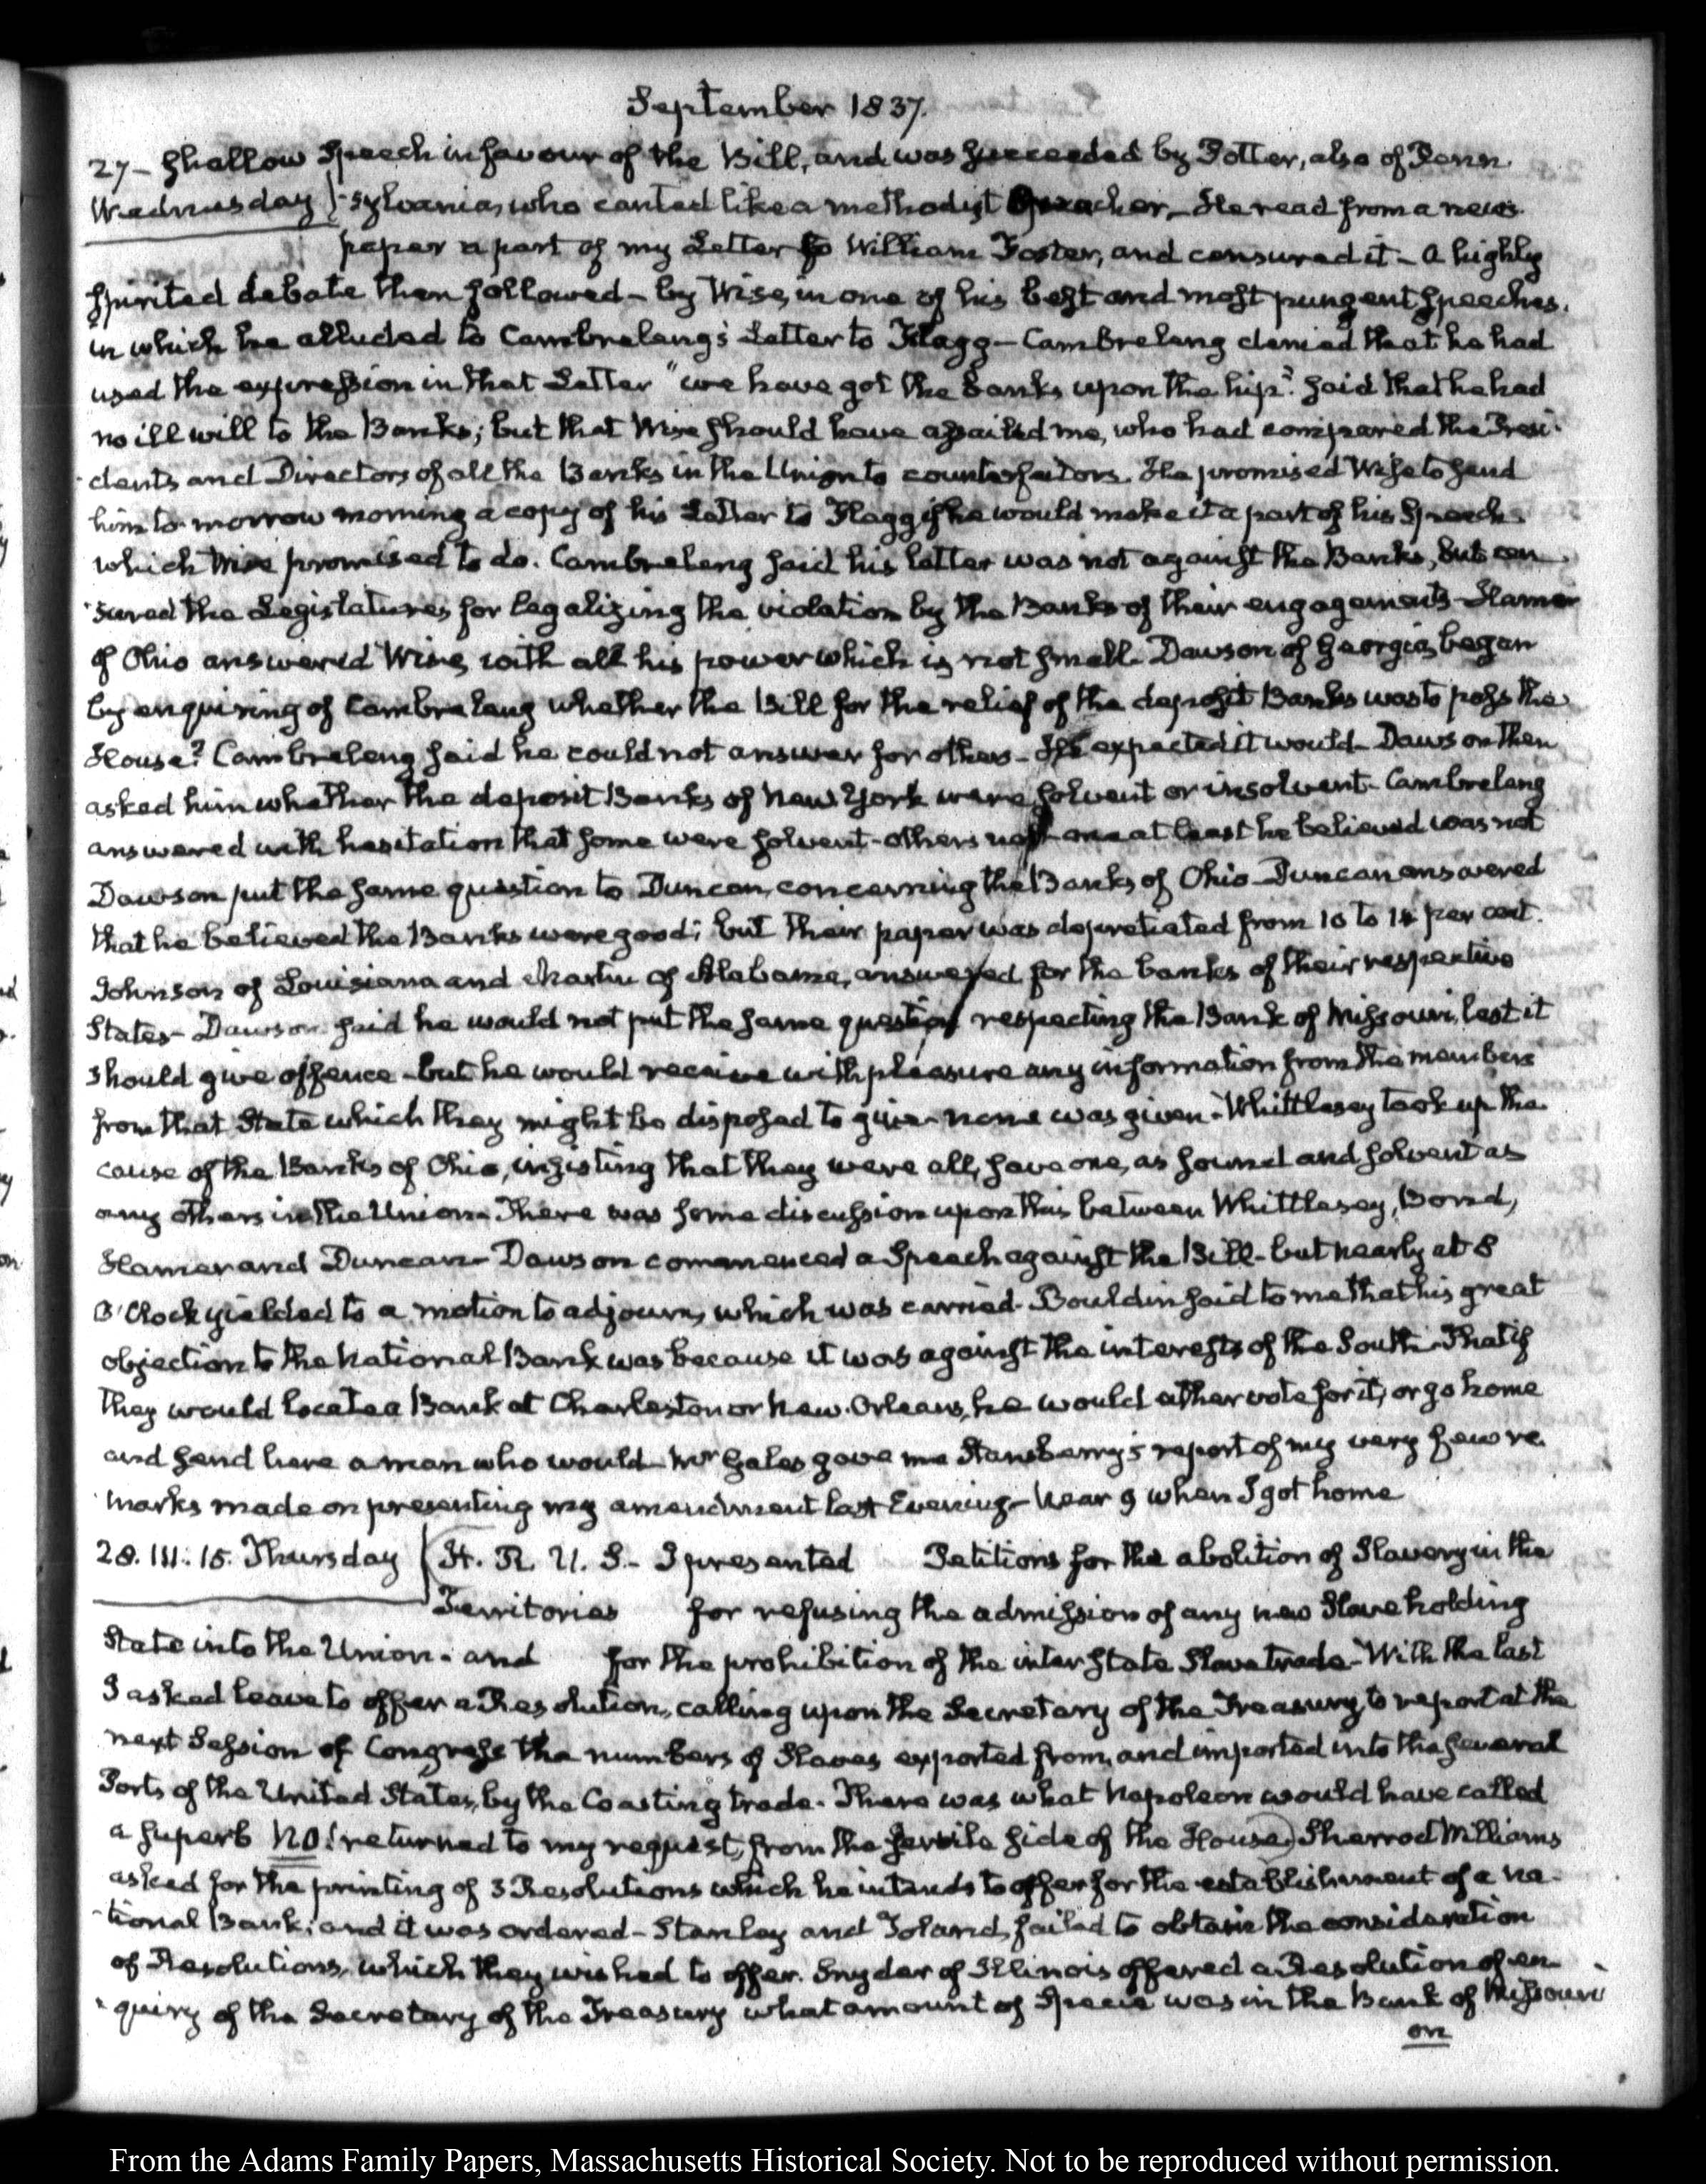 September 1837.
27 – shallow Speech in favour of the Bill, and was succeeded by Potter, also of Penn
Wednesday -sylvania, who canted like a methodist preacher – He read from a news-
paper a part of my Letter to William Foster, and censured it – A highly
spirited debate then followed – by Wise, in one of his best and most pungent speeches.
in which he alluded to Cambreleng's Letter to Flagg – Cambreleng denied that he had
used the expression in that Letter "we have got the banks upon the hip". said that he had
no ill will to the Banks; but that Wise should have assailed me, who had compared the Presi-
-dents and Directors of all the Banks in the Union to counterfeitors. He promised Wise to send
him to-morrow morning a copy of his Letter to Flagg if he would make it a part of his Speech
which Wise promised to do. Cambreleng said his letter was not against the Banks, but cen
-sured the Legislatures for legalizing the violation by the Banks of their engagements – Hamer
of Ohio answered Wise, with all his power which is not small – Dawson of Georgia, began
by enquiring of Cambreleng whether the Bill for the relief of the deposit Banks was to pass the
House? Cambreleng said he could not answer for others – He expected it would – Dawson then
asked him whether the deposit Banks of New York were solvent or insolvent – Cambreleng
answered with hesitation that some were solvent – others not – one at least he believed was not
Dawson put the same question to Duncan, concerning the Banks of Ohio – Duncan answered
that he believed the Banks were good; but their paper was depretiated from 10 to 14 per cent.
Johnson of Louisiana and Martin of Alabama, answered for the banks of their respective
States – Dawson said he would not put the same question respecting the Bank of Missouri, lest it
should give offence – but he would receive with pleasure any information from the members
from that State which they might be disposed to give – none was given – Whittlesey took up the
cause of the Banks of Ohio, insisting that they were all, save one, as sound and solvent as
any others in the Union – There was some discussion upon this between Whittlesey, Bond,
Hamer and Duncan – Dawson commenced a Speech against the Bill – but nearly at 8
O'Clock yielded to a motion to adjourn, which was carried – Bouldin said to me that his great
objection to the National Bank was because it was against the interests of the South – That if
they would locate a Bank at Charleston or New-Orleans, he would either vote for it, or go home
and send here a man who would – Mr Gales gave me Stansberry's report of my very few re
-marks made on presenting my amendment last Evening – Near 9 when I got home
28. III: 15. Thursday H. R. U. S. – I presented Petitions for the abolition of Slavery in the
Territories for refusing the admission of any new Slave holding
State into the Union – and for the prohibition of the inter state Slave trade – With the last
I asked leave to offer a Resolution, calling upon the Secretary of the Treasury, to report at the
next Session of Congress the numbers of Slaves exported from, and imported into the several
Ports of the United States, by the Coasting trade – There was what Napoleon would have called
a superb NO! returned to my request, from the servile side of the House) Sherrod Williams
asked for the printing of 3 Resolutions which he intends to offer for the establishment of a na-
-tional Bank; and it was ordered – Stanley and Toland, failed to obtain the consideration
of Resolutions, which they wished to offer. Snyder of Illinois offered a Resolution of en-
-quiry of the Secretary of the Treasury what amount of Specie was in the Bank of Missouri
on
From the Adams Family Papers, Massachusetts Historical Society. Not to be reproduced without permission.